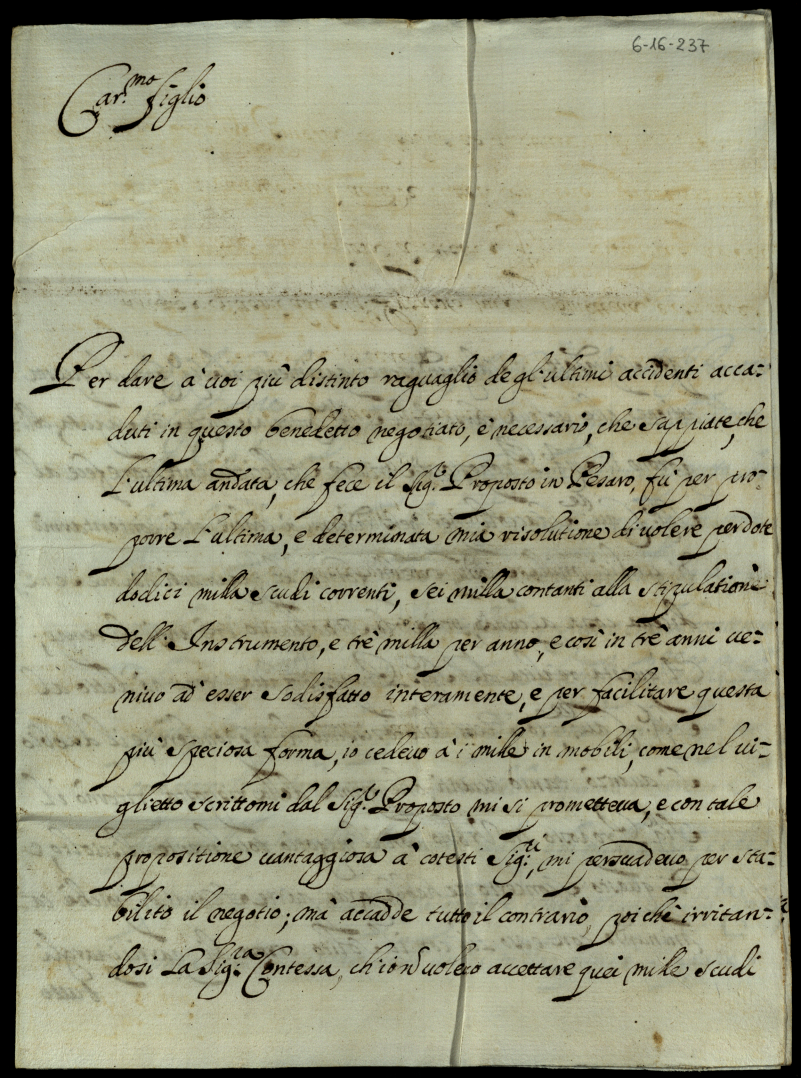 6-16-237
Car.mo figlio
Per dare à voi più distinto raguaglio degl'ultimi accidenti acca-
duti in questo benedetto negotiato, è necessario, che sappiate, che
l'ultima andata, che fece il Sig.r Proposto in Pesaro, fù per pro-
porre l'ultima, e determinata mia risolutione di volere per dote
dodici milla scudi correnti, sei milla contanti alla stipulatione
dell'Instrumento, e trè milla per anno, e così in trè anni ve-
nivo ad esser sodisfatto interamente, e per facilitare questa
più speciosa forma, io cedevo à i mille in mobili, come nel vi-
glietto scrittomi dal Sig.r Proposto mi si prometteva, e con tale
propositione vantaggiosa à cotesti Sig.ri, mi persuadevo per sta-
bilito il negotio; mà accadde tutto il contrario, poiche irritan-
dosi La Sig.ra Contessa, ch'io nõ volevo accettare quei mille scudi